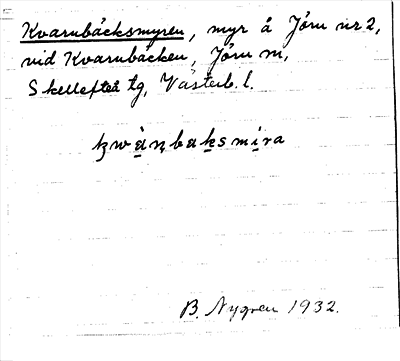 Kvarnbäcksmyren, myr å Jörn nr 2,
vid Kvarnbäcken, Jörn sn,
Skellefteå tg, Västerb. l.
B. Nygren 1932.